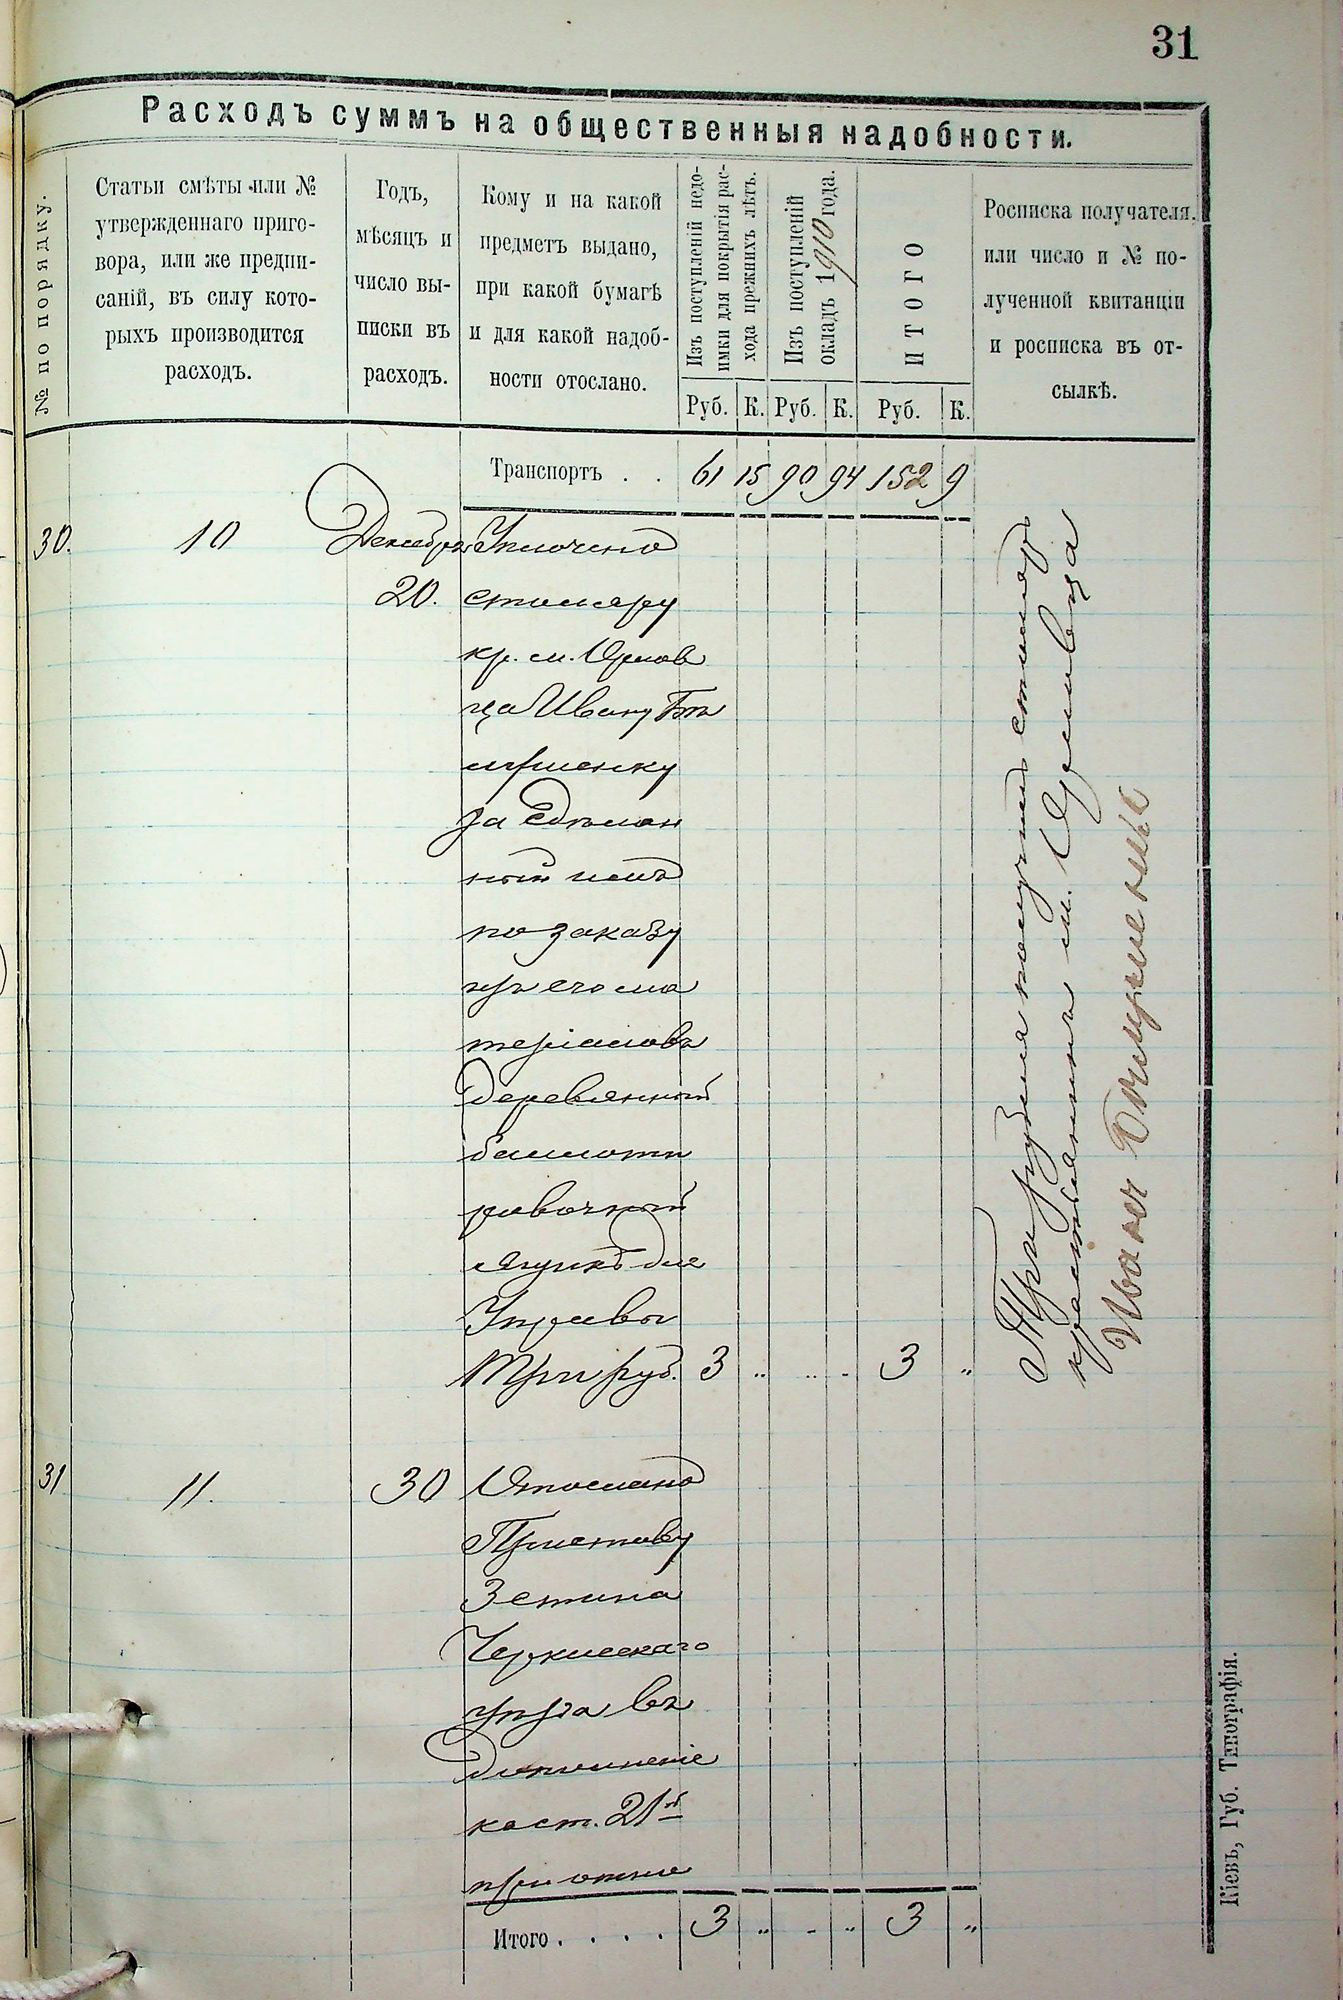 31
Расходъ суммъ на общественныя надобности.
№ по порядку.
Статьи смѣты или №
утвержденнаго приго-
вора, или же предпи-
саній, въ силу кото-
рыхъ производится
расходъ.
Годъ,
мѣсяцъ и
число вы-
писки въ
расходъ.
Кому и на какой
предметъ выдано,
при какой бумагѣ
и для какой надоб-
ности отослано.
Изъ поступленій недо-
имки для покрытія рас-
хода прежнихъ лѣтъ.
Изъ поступленій
окладъ 1910 года.
ИТОГО
Росписка получателя,
или число и № по-
лученной квитанціи
и росписка въ от-
сылкѣ.
Руб. К. Руб. К. Руб. К.
Транспортъ . . 61 15 90 94 152 9
30. 10 Декабря Уплочено
20. столяру
кр. м. Орлов
ца Ивану
за сдѣлан
ный имъ
по заказу
изъ его ма
теріаловъ
деревянный
баллоти
ровочный
ящикъ для
Управы
три руб. 3 „ .. - 3 „
Три рубля получилъ столяръ
крестьянинъ м. Орловца
Иванъ
31 11. 30 Отослано
Приставу
3 стана
Черкасскаго
уѣзда въ
дополненіе
к ст. 21й
при отно
Итого . . . . 3 „ - „ 3 „
Кіевъ, Губ. Типографія.